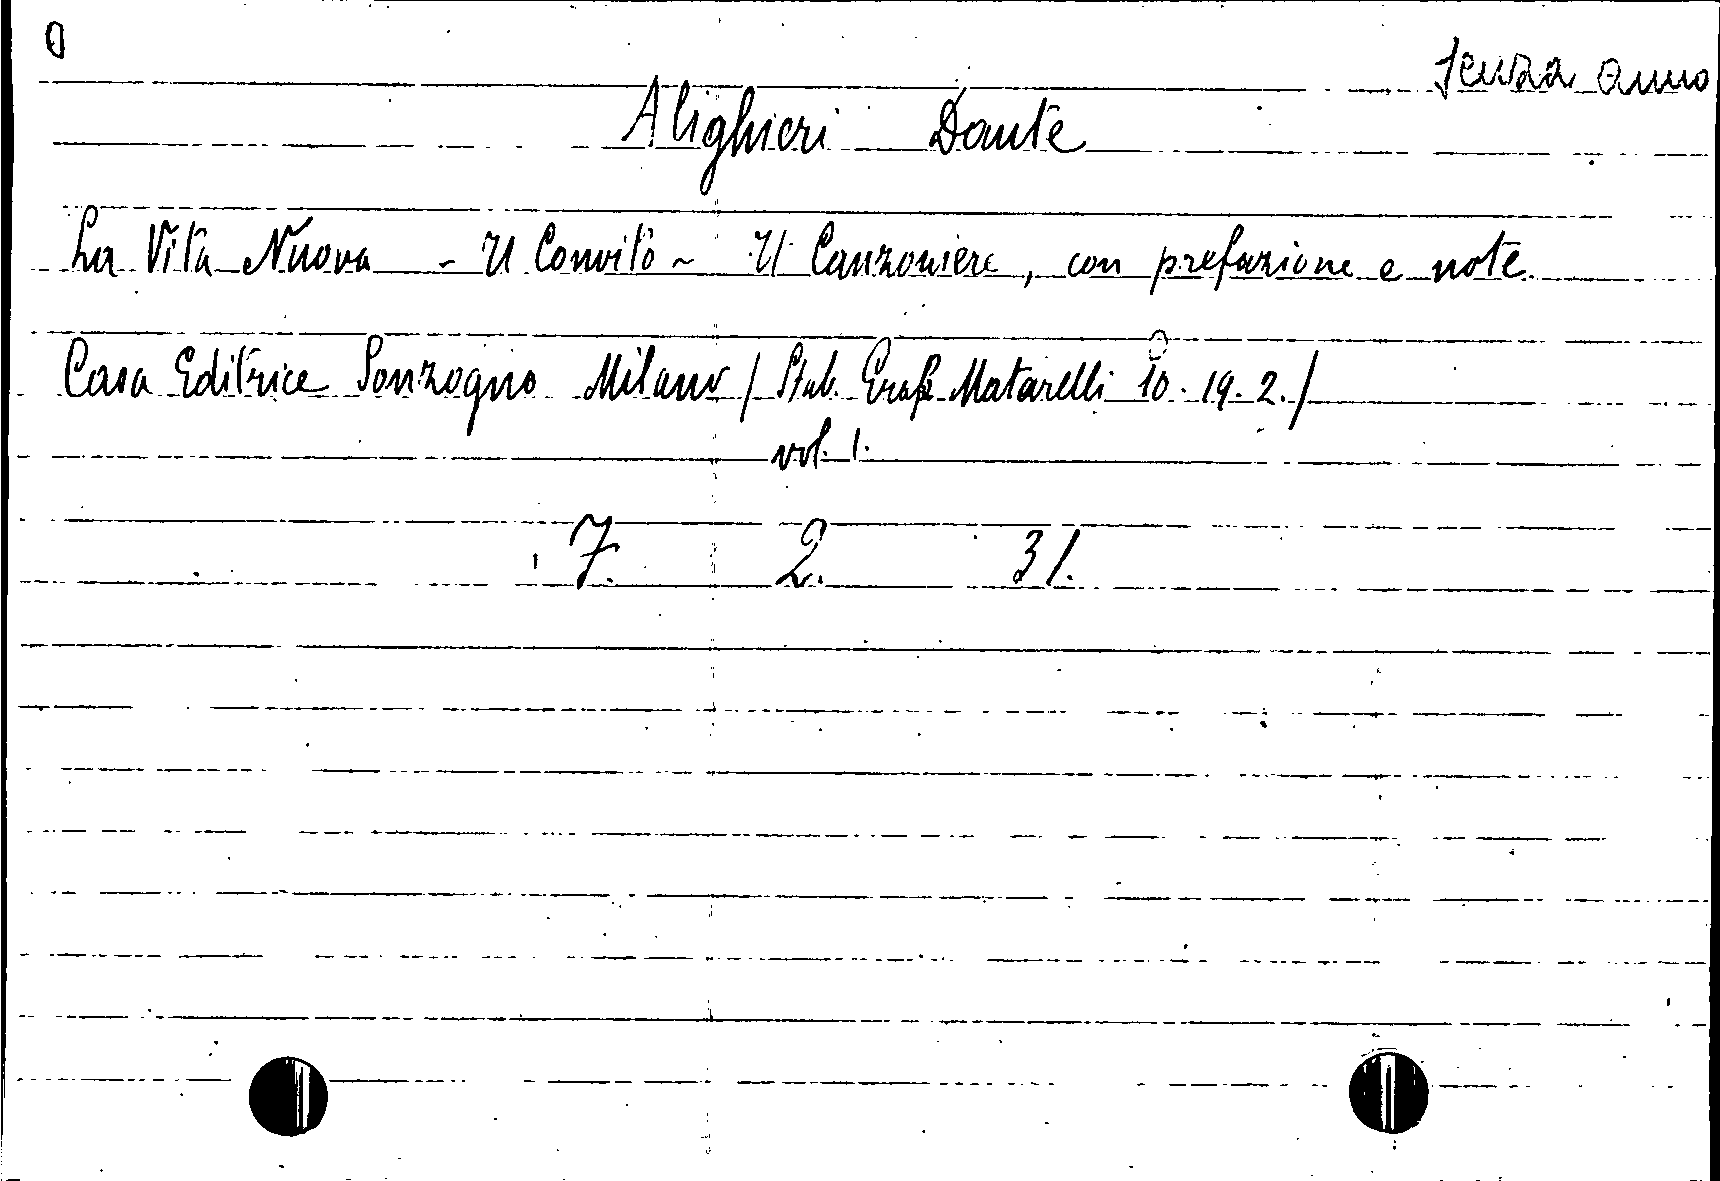 0
senza anno
Alighieri Dante
La Vita Nuova - Il Convito - Il Canzoniere, con prefazione e note
Casa Editrice Sonzogno Milano / Stab. Graf. Matarelli 10. 19. 2. /
vol. 1.
7. 2. 31.